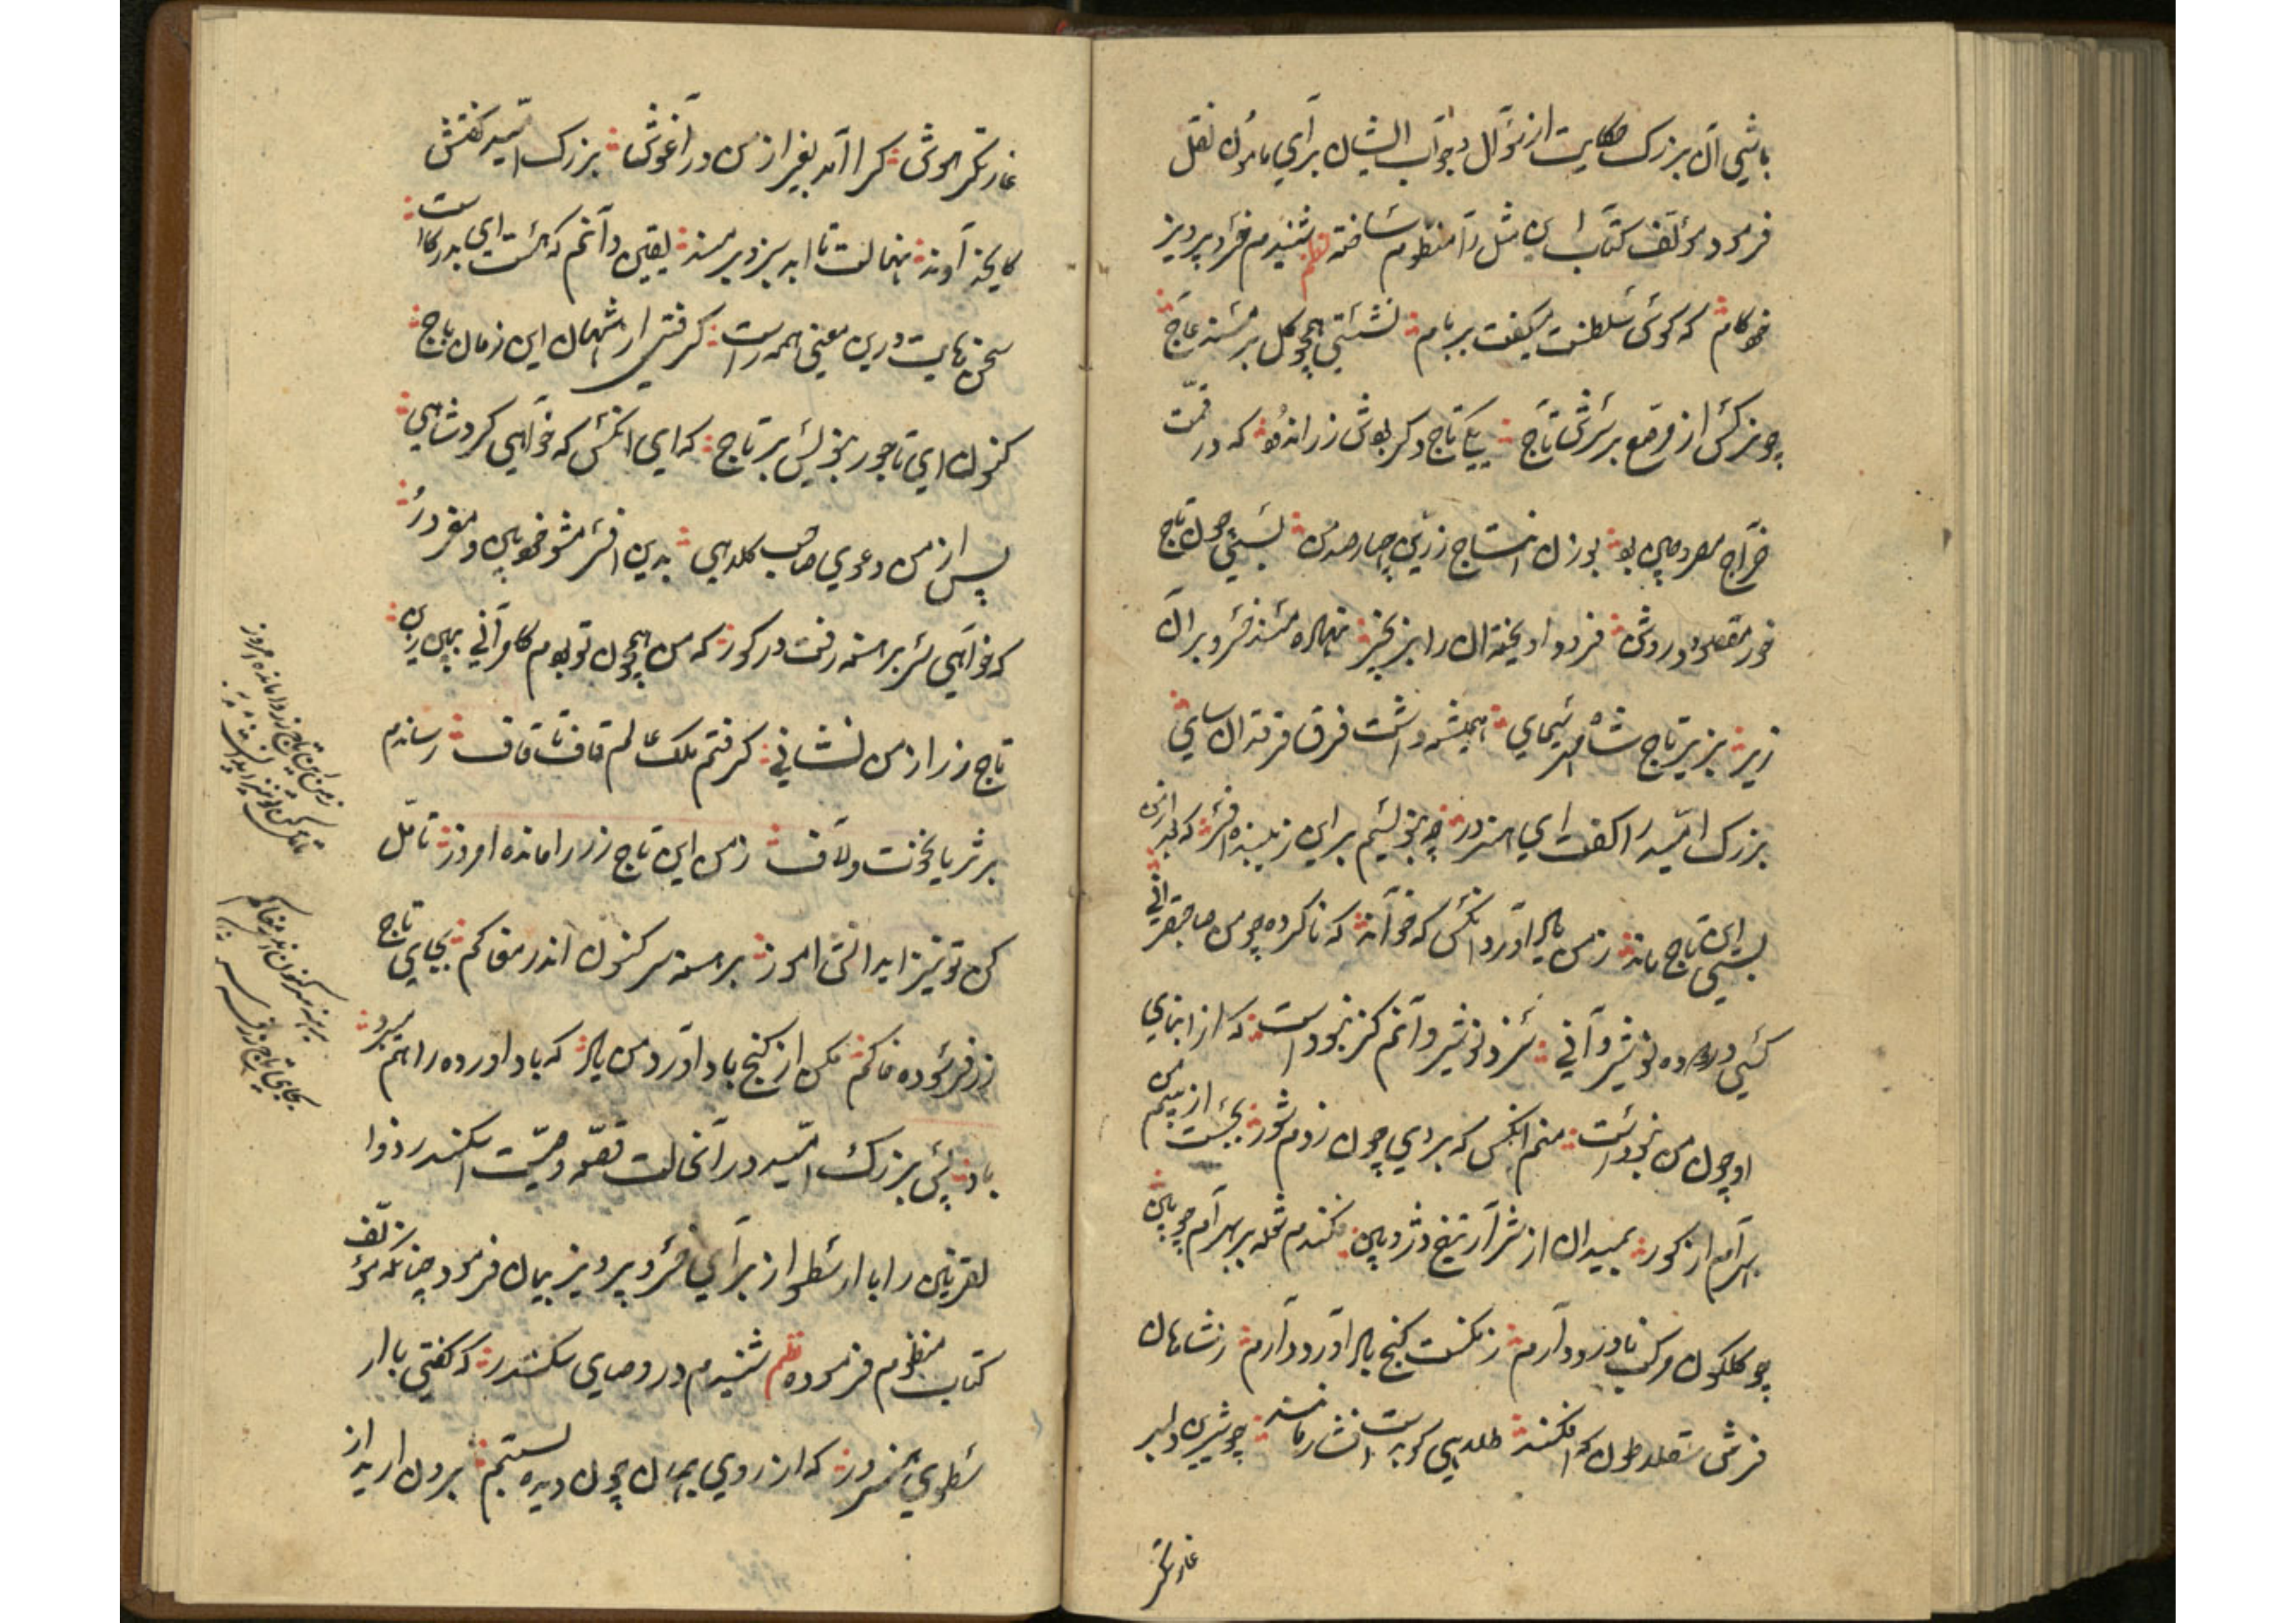 باشی آن بزرگ حکایت از سوآل و جوآب ایشان برآی مامون نقل
فرمود مؤلف کتاب این مثل را منظوم ساخته نظم شنیدم خسرو پرویز
خودکام که کوس سلطنت میکفت بر بام نشستی همچو کل بر مسند عاج
چو نرکس از مرصع بر سرش تاج یکی تاج دکر بودش زر اندود که در قیمت
خرآج مصر و چین بود بوزن انتاج زرین چارصد من بستی چون تاج
خور مقصود روشن فرود اویخته آن را بزنجیر نهاده مسند خسرو برآن
زیر بزیر تاج شاه مهر سیمای همیشه داشت فرق فرقدان سای
بزرک امید را کفت ای هنرور چه بنویسم بر این زیبنده افسر که بعد از من
بسی این تاج ماند ز من یاد اورد انکس که خوآند که ناکرده چو من صاحبقرانی
کسی در ده نوشیروآنی سزد نوشیروآنم کز نبود است که از ابنای
او چون من نبود است منم انکس که بر وی چون زدم شور بجست از بیم من
بهرآم از کور بمیدان از شرآر تیغ و ژوپین فکندم شعله بر بهرآم چوپین
چو کلکون مرکب نادرود دآرم ز نکست کنج باد آورد دآرم ز شاهان
فرش سقلاطون که افکند طلایی کو بدست افشار مانند چو شیرین دلبر
غارتکر
غارتکر هوش کرا آمد بغیر از من در آغوش بزرک امید کفتش
کایخدآوند نهالت تا ابد سبز و برمند یقین دآنم که هست ای بدر کا ست
سخنهایت درین معنی همه راست کرفتی از شهان این زمان باج
کنون ای تاجور بنویس بر تاج که ای انکس که خوآهی کرد شاهی
پس از من دعوی صاحب کلاهی بدین افسر مشو خودبین و مغرور
که خوآهی سر برهنه رفت در کور که من همچون تو بودم کامرآنی ببین این
تاج زر از من نشانی کرفتم ملک عالم قاف تا قاف رساندم
بر ثریا نخوت و لاف ز من این تاج زر وامانده امروز تامل
کن تو نیز ایدانش اموز برهنه سر کنون اندر مغاکم بجای تاج
زر فرسوده خاکم مکن از کنج باد آورد من یاد که باد اورده را هم میبرد
باد پس بزرک امید در آنحالت قصه وصیت اسکندر ذوا
لقرنین را با ارسطو از برآی خسرو پرویز بیان فرمود چنانکه مؤلف
کتاب منظوم فرموده نظم شنیدم در وصایای سکندر که کفتی با ار
سطوی هنرور که از روی جهان چون دیده بستم برون ارید از
ز من این تاج زر وامانده امروز
تامل کن تو نیز ایدانش اموز
برهنه سر کنون اندر مغاکم
بجای تاج زر فرسوده